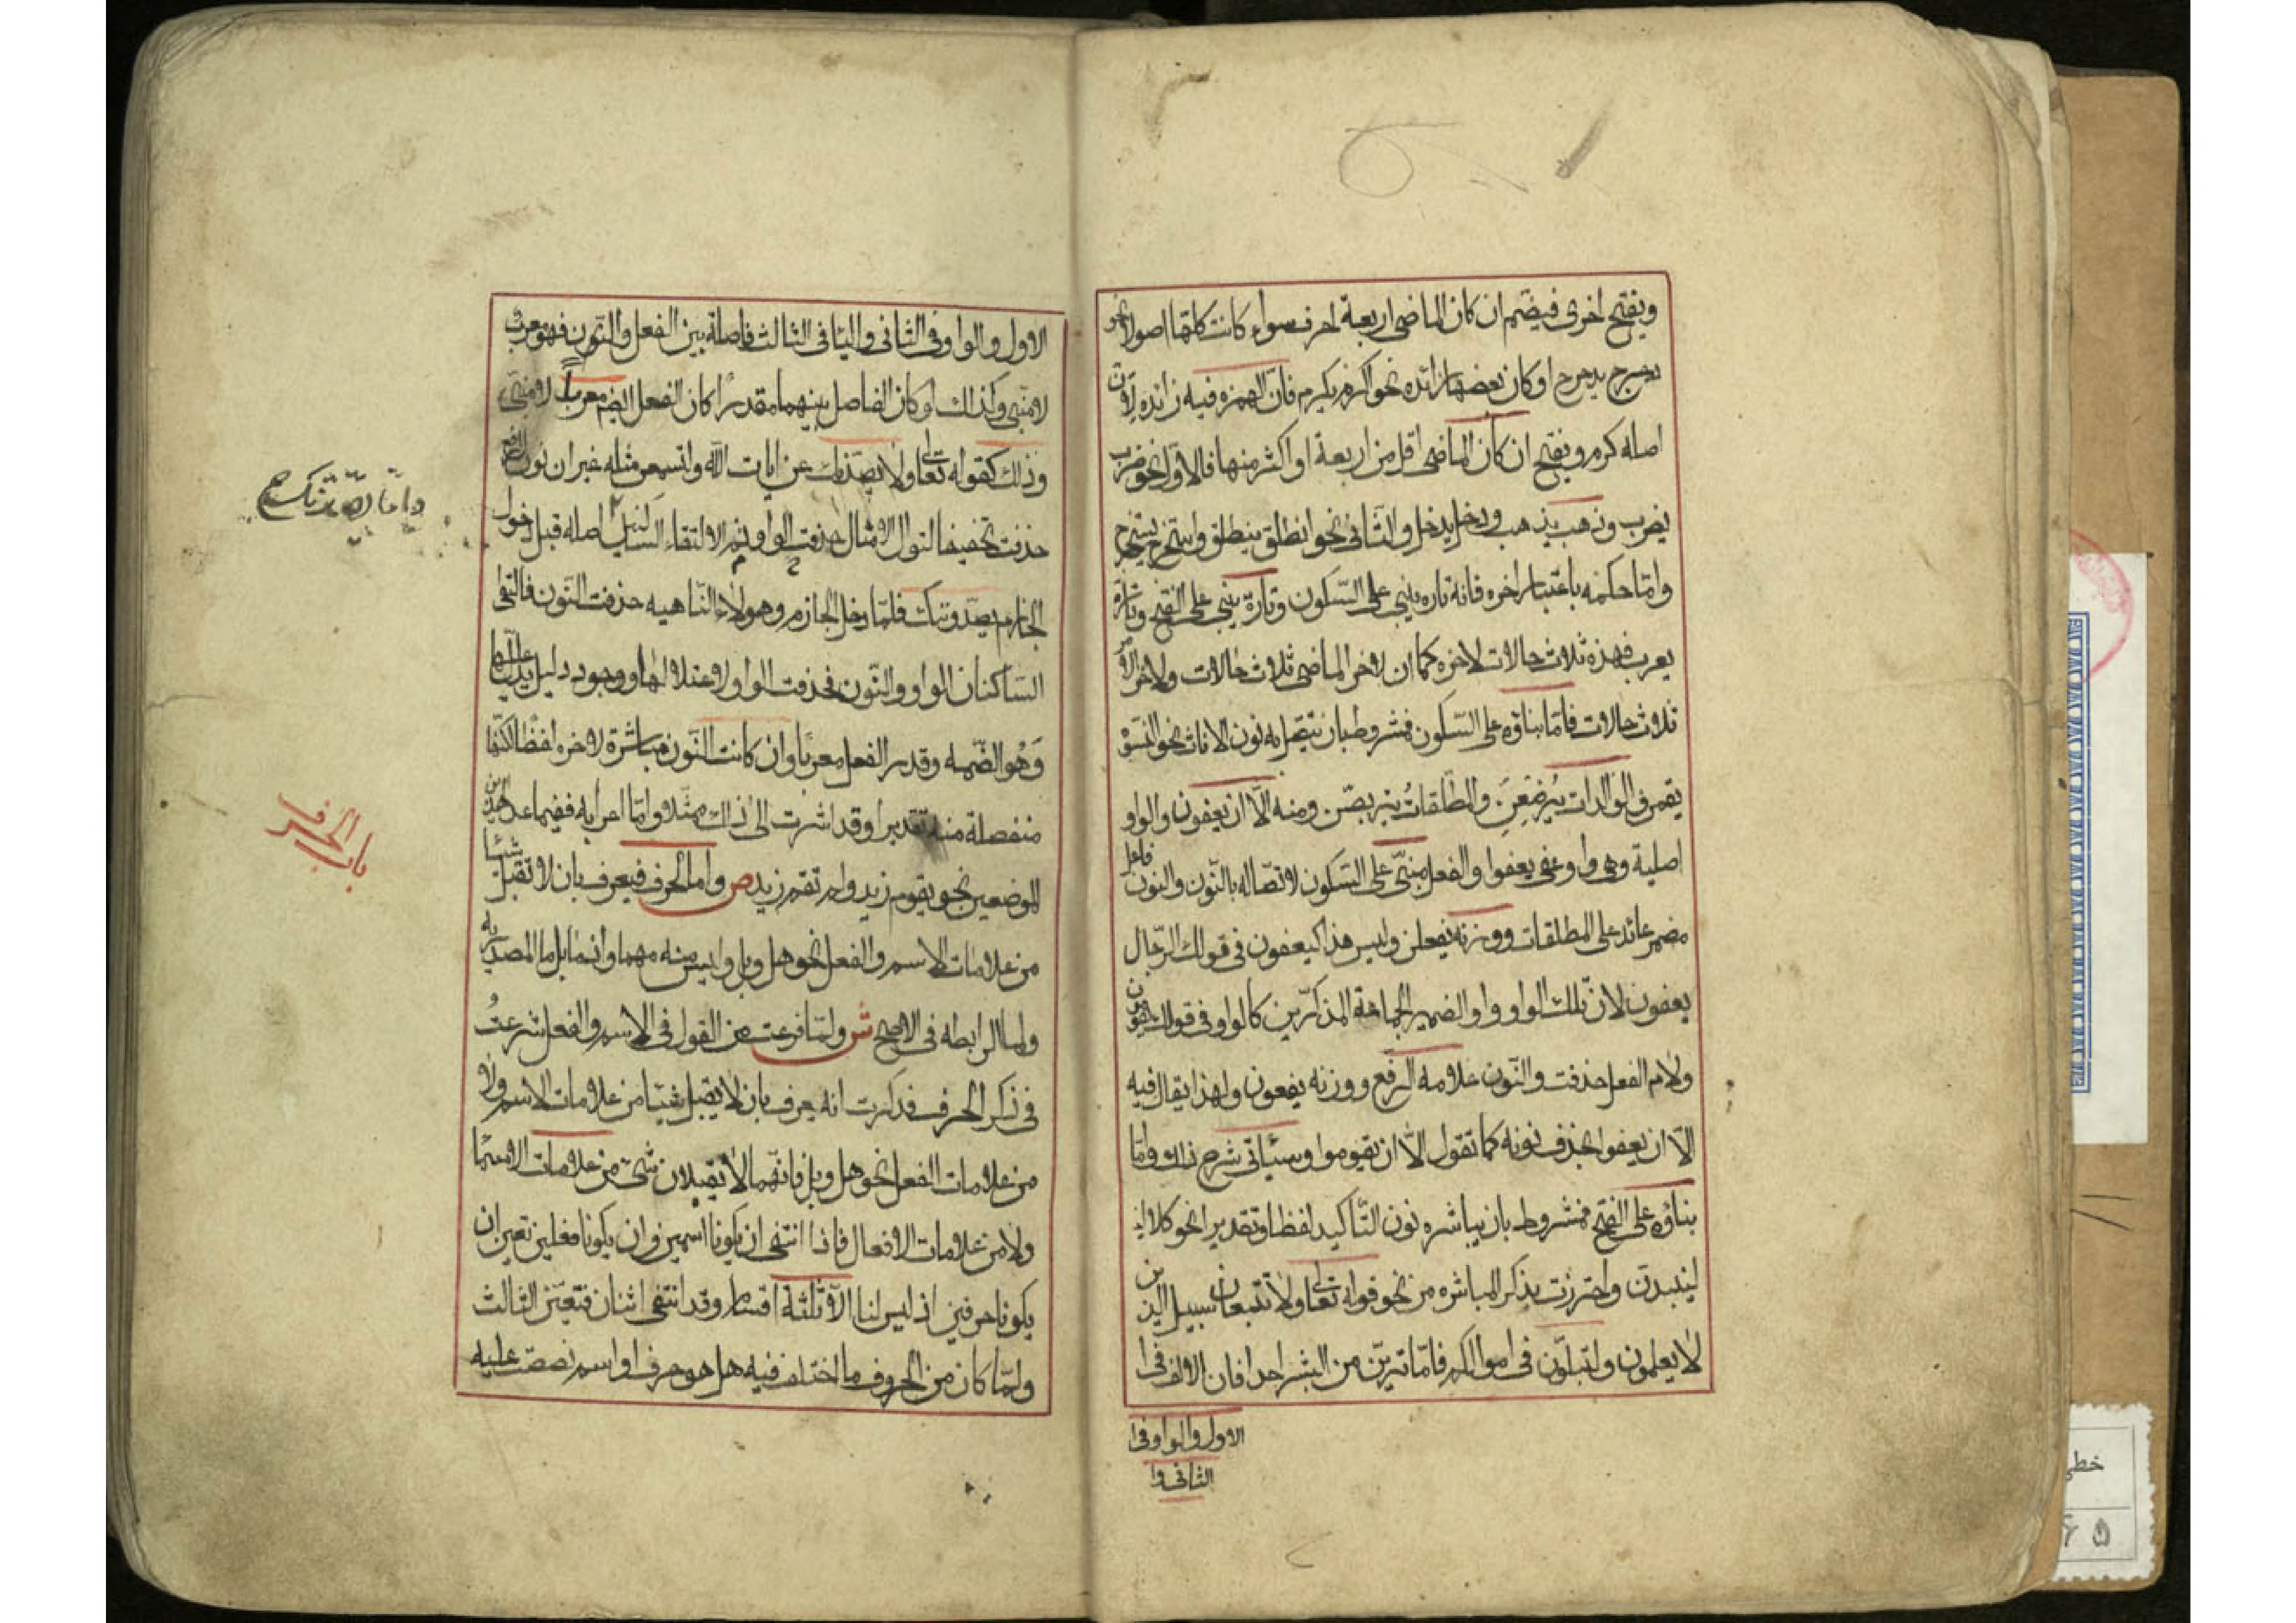 ويفتح اخرى فيضم ان كان الماضى اربعة احرف سواء كانت كلها اصولا نحو
دحرج يدحرج او كان بعضها زائده نحو اكرم يكرم فان الهمزه فيه زائده لان
اصله كرم ويفتح ان كان الماضى اقل من اربعة او اكثر منها فالاول نحو ضرب
يضرب وذهب يذهب ودخل يدخل والثانى نحو انطلق ينطلق واستخرج يستخرج
واما حكمه باعتبار اخره فانه تاره يبنى على السكون وتارة يبنى على الفتح وتارة
يعرب فهذه ثلاث حالات لاخره كما ان لاخر الماضى ثلاث حالات ولاخر الامر
ثلاث حالات فاما بناؤه على السكون فمشروط بان يتصل به نون الاناث نحو النسوة
يقمن والوالدات يُرضعنَ والمطلقاتُ يتربصن ومنه الّا ان يعفون والواو
اصلية وهى واو عفى يعفوا والفعل مبنىّ على السّكون لاتصاله بالنّون والنون فاعل
مضمر عائد على المطلقات ووزنه يفعلن وليس هذا كيعفون فى قولك الرّجال
يعفون لان تلك الواو واو الضمير لجماعة المذكرين كالواو فى قولك يقومون
ولام الفعل حذفت والنّون علامه الرّفع ووزنه يفعون ولهذا يقال فيه
الّا ان يعفوا بحذف نونه كما تقول الّا ان يقوموا وسيأتى شرح ذلك وامّا
بناؤه على الفتح فمشروط بان يباشره نون التّاكيد لفظا وتقديرا نحو كلا
لينبذن واحترزت بذكر المباشره من نحو قوله تعالى ولا تتبعان سبيل الذين
لا يعلمون ولتبلونّ فى اموالكم فامّا ترينّ من البشر احدا فان الالف فى
الاول والواو فى
الثانى وا
الاول والواو فى الثانى واليا فى الثالث فاصلة بين الفعل والنّون فهو معرب
لا مبنى وكذلك لو كان الفاصل بينهما مقدرًا كان الفعل ايضم معرباً لا مبنىّ
وذلك كقوله تعالى ولا يصدّنك عن ايات الله ولتسمعن مثله غير ان نون الرفع
حذفت تخفيفا لتوالى الامثال ثم حذفت الواو لالتقاء الساكنين اصله قبل دخول
الجازم يصدّوننك فلمّا دخل الجازم وهو لاء النّاهيه حذفت النّون فالتقى
السّاكنان الواو والنّون فحذفت الواو لاعتلالها ووجود دليل يدل عليها
وَهُو الضّمه وقدر الفعل معربًا وان كانت النّون مباشرة لاخره لفظا لكنّها
منفصلة منه تقديرا وقد اشرت الى ذلك ممثلا وامّا اعرابه ففيما عدا هذين
الموضعين نحو يقوم زيد ولم تقم زيد ص واما الحرف فيعرف بان لا تقبل شيئا
من علامات الاسم والفعل نحو هل وبل وليس منه مهما وانما بل ما المصدريه
ولما الرابطه فى الاصح ش ولما فرغت من القول فى الاسم والفعل شرعتُ
فى ذكر الحرف فذكرت انه يعرف بان لا يقبل شيئا من علامات الاسم ولا
من علامات الفعل نحو هل وبل فانّهما لا تقبلان شئ من علامات الاسما
ولا من علامات الافعال فاذا انتفى ان يكونا اسمين وان يكونا فعلين تعين ان
يكونا حرفين اذ ليس لنا الّا ثلثة اقسام وقد انتفى اثنان فتعيّن الثالث
ولمّا كان من الحروف ما اختلف فيه هل هو حرف او اسم نصصت عليه
باب الحرف
خطى